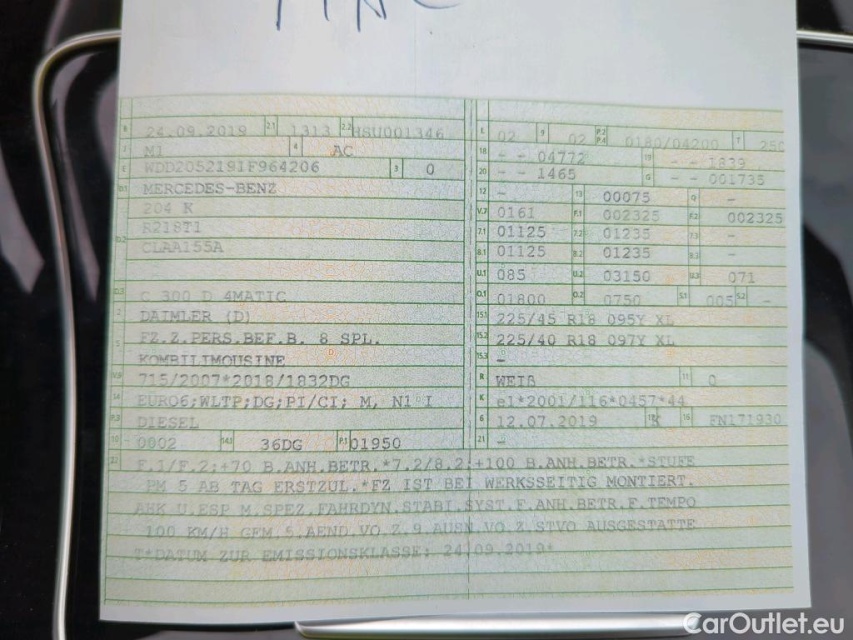 B 24.09.2019 2.1 1313 2.2 HSU001346
J M1 4 AC
E WDD2052191F964206 3 0
D.1 MERCEDES-BENZ
204 K
R218T1
D.2 CLAA155A
D.3 C 300 D 4MATIC
2 DAIMLER (D)
5 FZ.Z.PERS.BEF.B. 8 SPL.
KOMBILIMOUSINE
V.9 715/2007*2018/1832DG
14 EURO6;WLTP;DG;PI/CI; M, N1 I
P.3 DIESEL
10 0002 14.1 36DG P.1 01950
L 02 9 02 P.2 P.4 0180/04200 T 250
18 - - 04772 19 - - 1839
20 - - 1465 G - 001735
12 - 13 00075 Q -
V.7 0161 F.1 002325 F.2 002325
7.1 01125 7.2 01235 7.3 -
8.1 01125 8.2 01235 8.3 -
U.1 085 U.2 03150 U.3 071
O.1 01800 O.2 0750 S.1 005 S.2 -
15.1 225/45 R18 095Y XL
15.2 225/40 R18 097Y XL
15.3 -
R WEIß 11 0
K e1*2001/116*0457*44
6 12.07.2019 17 K 16 FN171930
21 -
22 F.1/F.2:+70 B.ANH.BETR.*7.2/8.2:+100 B.ANH.BETR.*STUFE
PM 5 AB TAG ERSTZUL.*FZ IST BEI WERKSSEITIG MONTIERT.
AHK U.ESP M.SPEZ.FAHRDYN.STABI.SYST.F.ANH.BETR.F.TEMPO
100 KM/H GEM.5.AEND.VO.Z.9.AUSN.VO.Z.STVO AUSGESTATTE
T*DATUM ZUR EMISSIONSKLASSE: 24.09.2019*
CarOutlet.eu